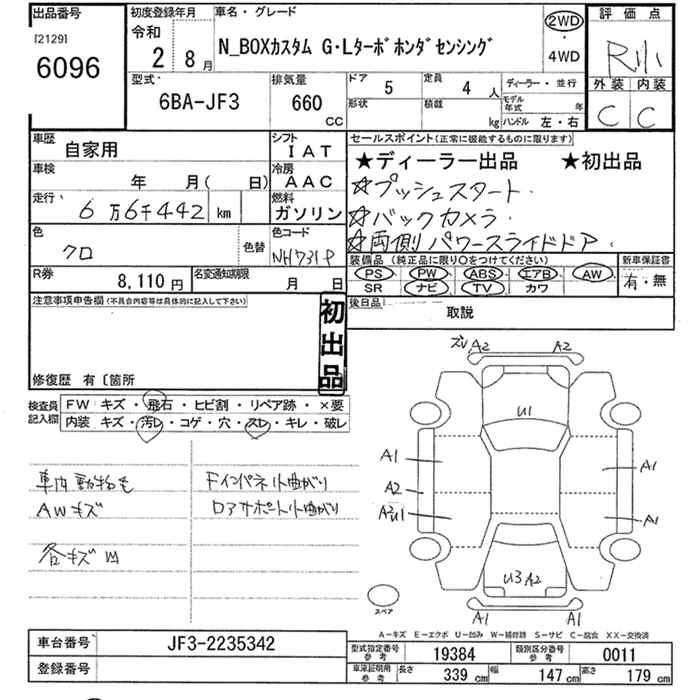 出品番号
[2129]
6096
初度登録年月
令和
2 8 月
車名・グレード
N_BOXカスタム G・Lターボホンダセンシング
2WD
・
4WD
評価点
R小
外装 内装
C C
型式
6BA-JF3
排気量
660
CC
ドア 5 定員 4 人
形状 積載 kg
ディーラー・並行
モデル年式 年
ハンドル 左・右
車歴 自家用
シフト IAT
車検 年 月( 日)
冷房 AAC
走行 6 万6千442 km
燃料 ガソリン
色 クロ
色替
色コード NH731P
R券 8,110 円
名変通知期限 月 日
セールスポイント(正常に機能するものに限ります)
★ディーラー出品 ★初出品
☆プッシュスタート.
☆バックカメラ
☆両側パワースライドドア.
装備品 (純正品に限り○をつけてください)
PS PW ABS エアB AW
SR ナビ TV カワ
新車保証書
有・無
後日品
取説
注意事項申告欄(不具合内容等は具体的に記入して下さい)
初出品
修復歴 有〔箇所
検査員記入欄
FW キズ・飛石・ヒビ割・リペア跡・×要
内装 キズ・汚レ・コゲ・穴・スレ・キレ・破レ
車内動物毛
AWキズ
各キズ凹
Fインパネ小曲がり
ロアサポート小曲がり
ズレ A2 A2
U1
A1 A1
A2
A2U1 A1
U3 A2
A1 A1
スペア
A-キズ E-エクボ U-凹み W-補修跡 S-サビ C-腐食 XX-交換済
車台番号 JF3-2235342
登録番号
型式指定番号参考 19384
類別区分番号参考 0011
車庫証明用参考 長さ 339 cm 幅 147 cm 高さ 179 cm